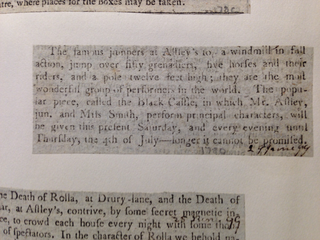 tre, where places for the boxes may be taken.
The famous jumpers at Astley's to, a windmill in full
action, jump over fifty grenadiers, five horses and those
riders, and a pole twelve feet high; they are the most
wonderful group of performers in the world. The popu-
lar piece, called the Black Castle, in which Mr. Astley,
jun. and Mrs Smith, perform principal characters, will
be given this present Saturday, and every evening until
Thursday, the 4th of July—longer it cannot be promised.
the Death of Rolla, at Drury-lane, and the Death of
at Astley's, contrive, by some secret magnetic in-
ce, to crowd each house every night with some
of spectators. In the character of Rolla we behold